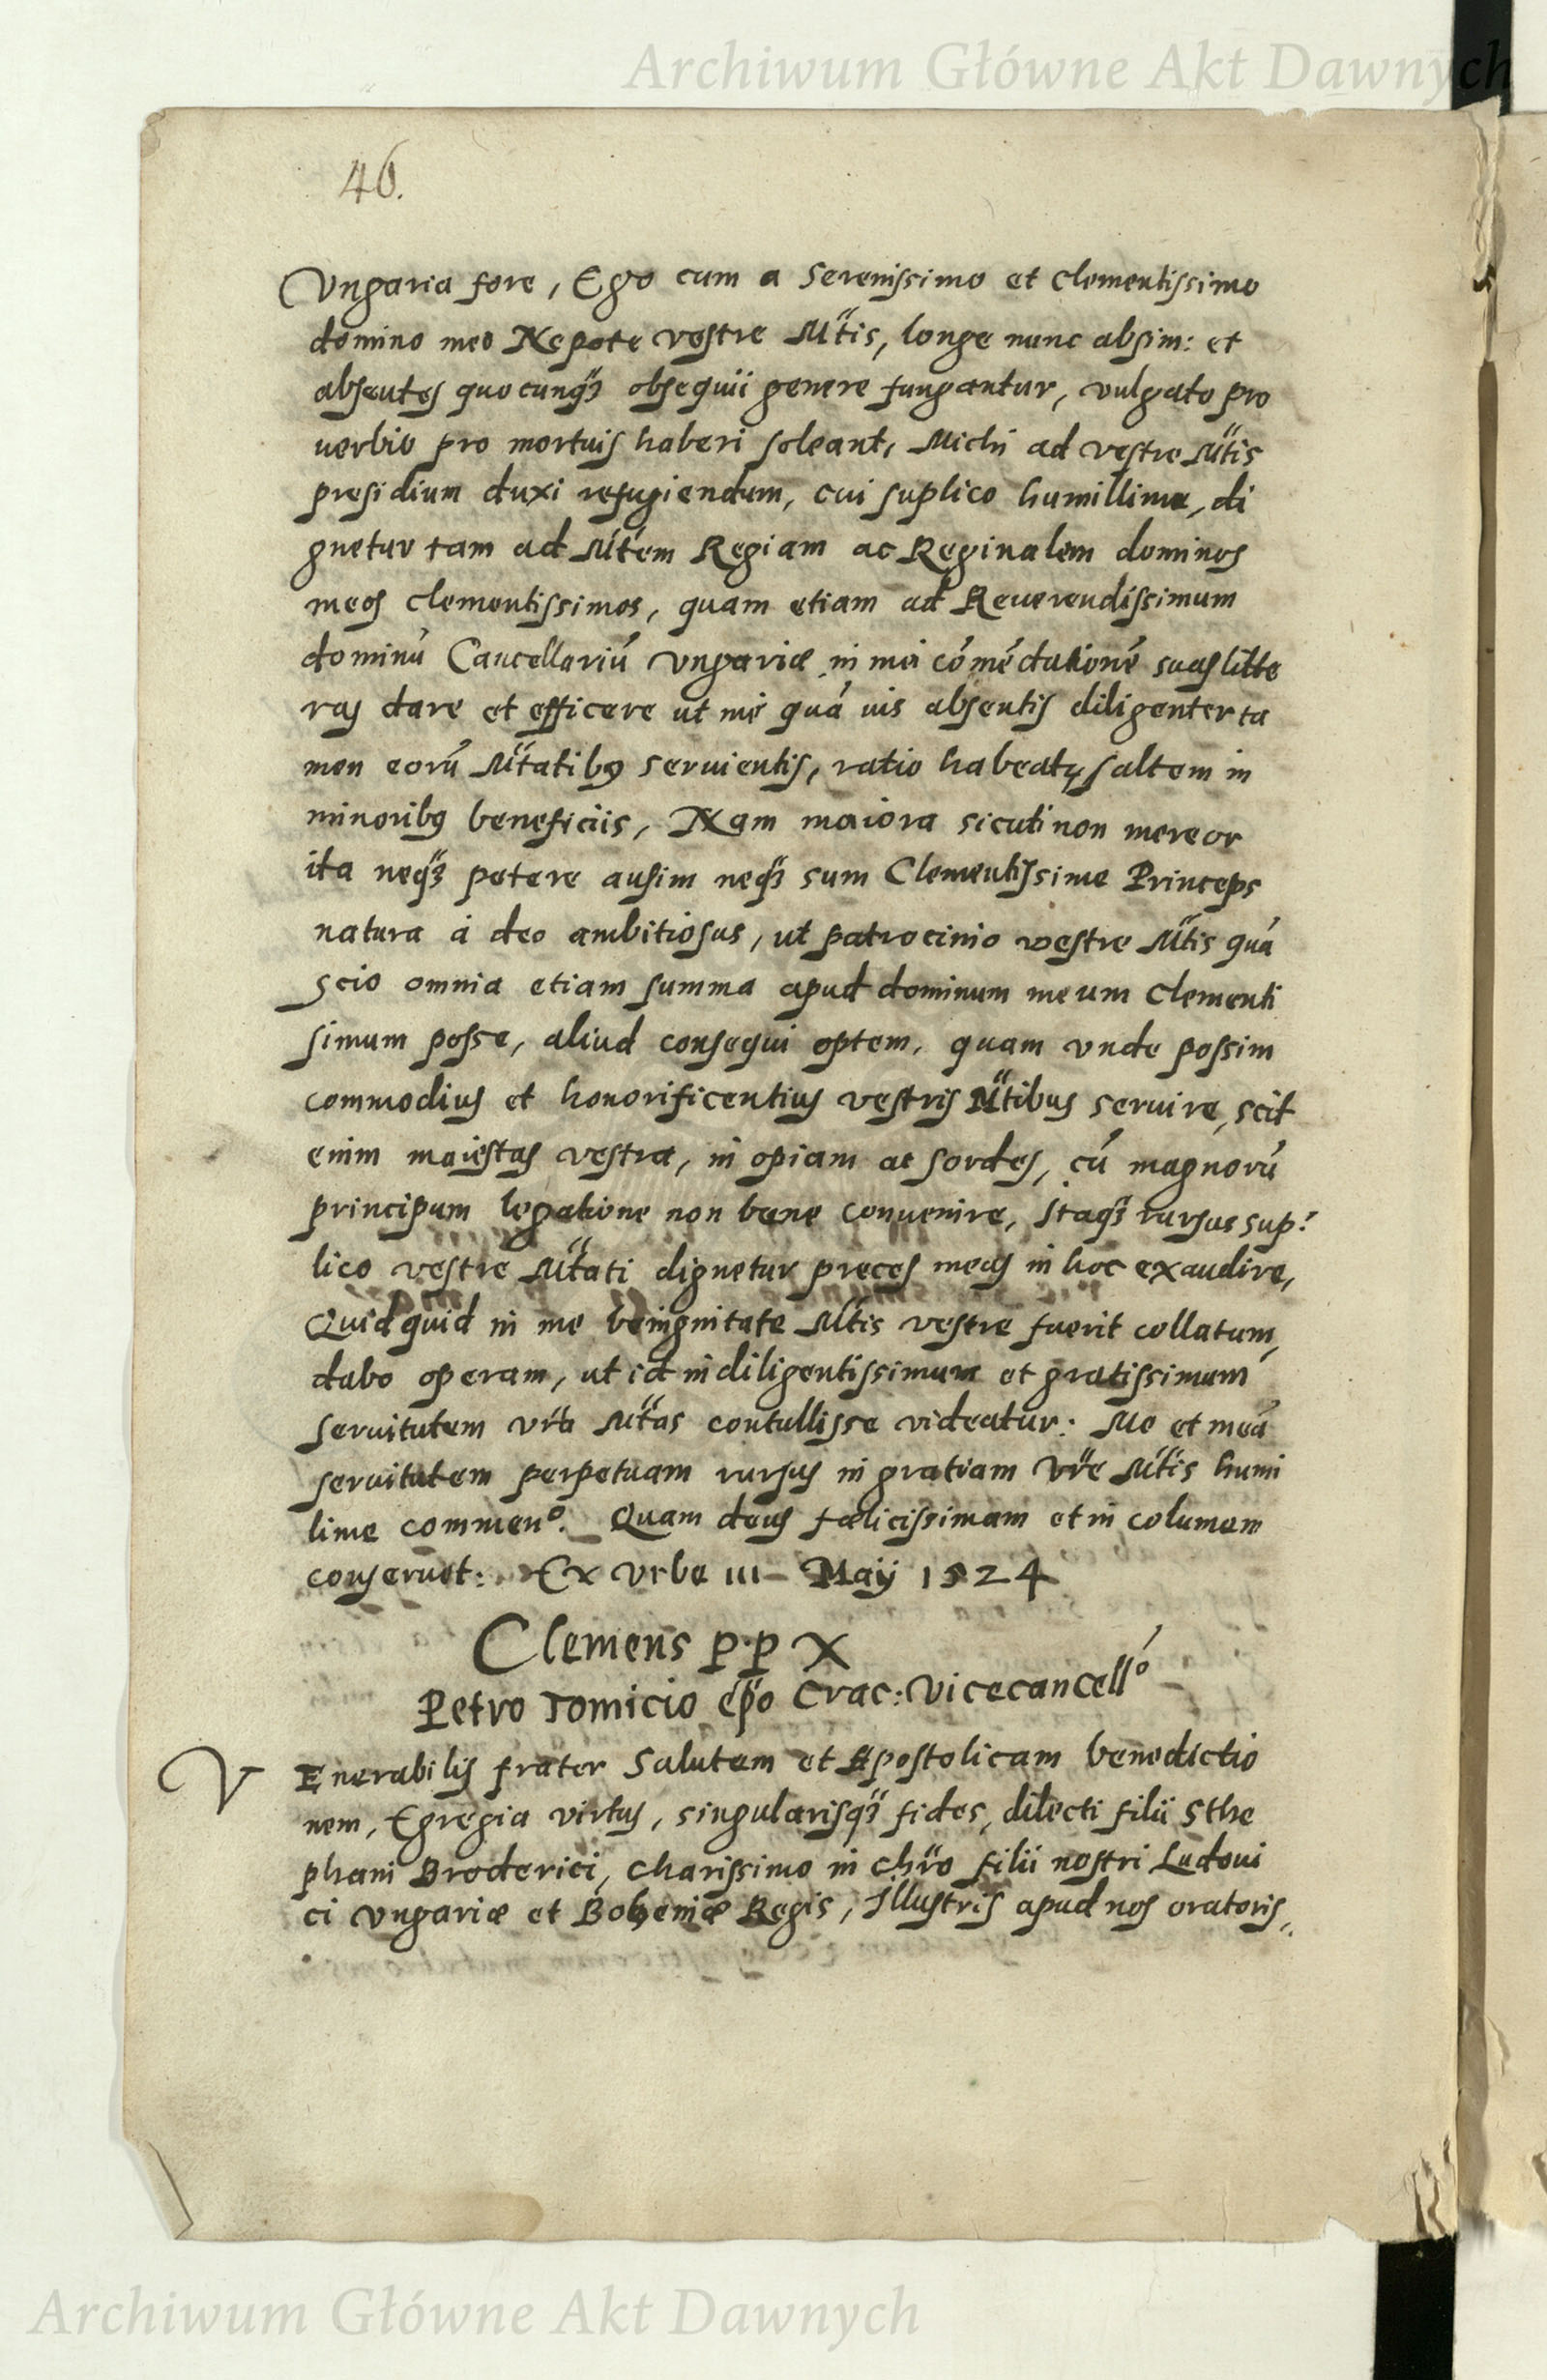 Archiwum Główne Akt Dawnych
46.
Vngaria fore, Ego cum a Serenissimo et clementissimo
domino meo Nepote vestre Mtis, longe nunc absim: et
absentes quocunqȝ obsequii genere fungantur, vulgato pro
uerbio pro mortuis haberi soleant, Michi ad vestre Mtis
presidium duxi refugiendum, cui suplico humillime, di
gnetur tam ad Mtem Regiam ac Reginalem dominos
meos clementissimos, quam etiam ad Reuerendissimum
dominū Cancellariū Vngariæ in mei cōmēdationē suas litte
ras dare et efficere ut mei quā uis absentis diligenter ta
men eorū Mtatibꝯ seruientis, ratio habeatꝛ saltem in
minoribꝯ beneficiis, Nam maiora sicuti non mereor
ita neqȝ petere ausim neqȝ sum Clementissime Princeps
natura a deo ambitiosus, ut patrocinio vestre Mtis quā
scio omnia etiam summa apud dominum meum clementi
simum posse, aliud consequi optem, quam vnde possim
commodius et honorificentius vestris Mtibus seruire, scit
enim maiestas vestra, in opiam ac sordes, cū magnorū
principum legatione non bene conuenire, Itaqȝ rursus sup:
lico vestre Mtati dignetur preces meas in hoc exaudire,
Quidquid in me beingnitate Mtis vestre fuerit collatum,
dabo operam, ut id in diligentissimum et gratissimum
seruitutem vra Mtas contullisse videatur: Me et meā
seruitutem perpetuam rursus in gratiam vre Mtis humi
lime commen°. Quam deus fœlicissimam et in columem
conseruet: Ex Vrbe III Maÿ 1524
Clemens P.P X
Petro Tomicio epo Crac: Vicecancell°
VEnerabilis frater Salutem et Apostolicam benedictio
nem, Egregia virtus, singularisqȝ fides, dilecti filii Sthe
phani Broderici, charissimo in chro filii nostri Ludoui
ci Vngariæ et Bohemiæ Regis, Illustris apud nos oratoris,
Archiwum Główne Akt Dawnych